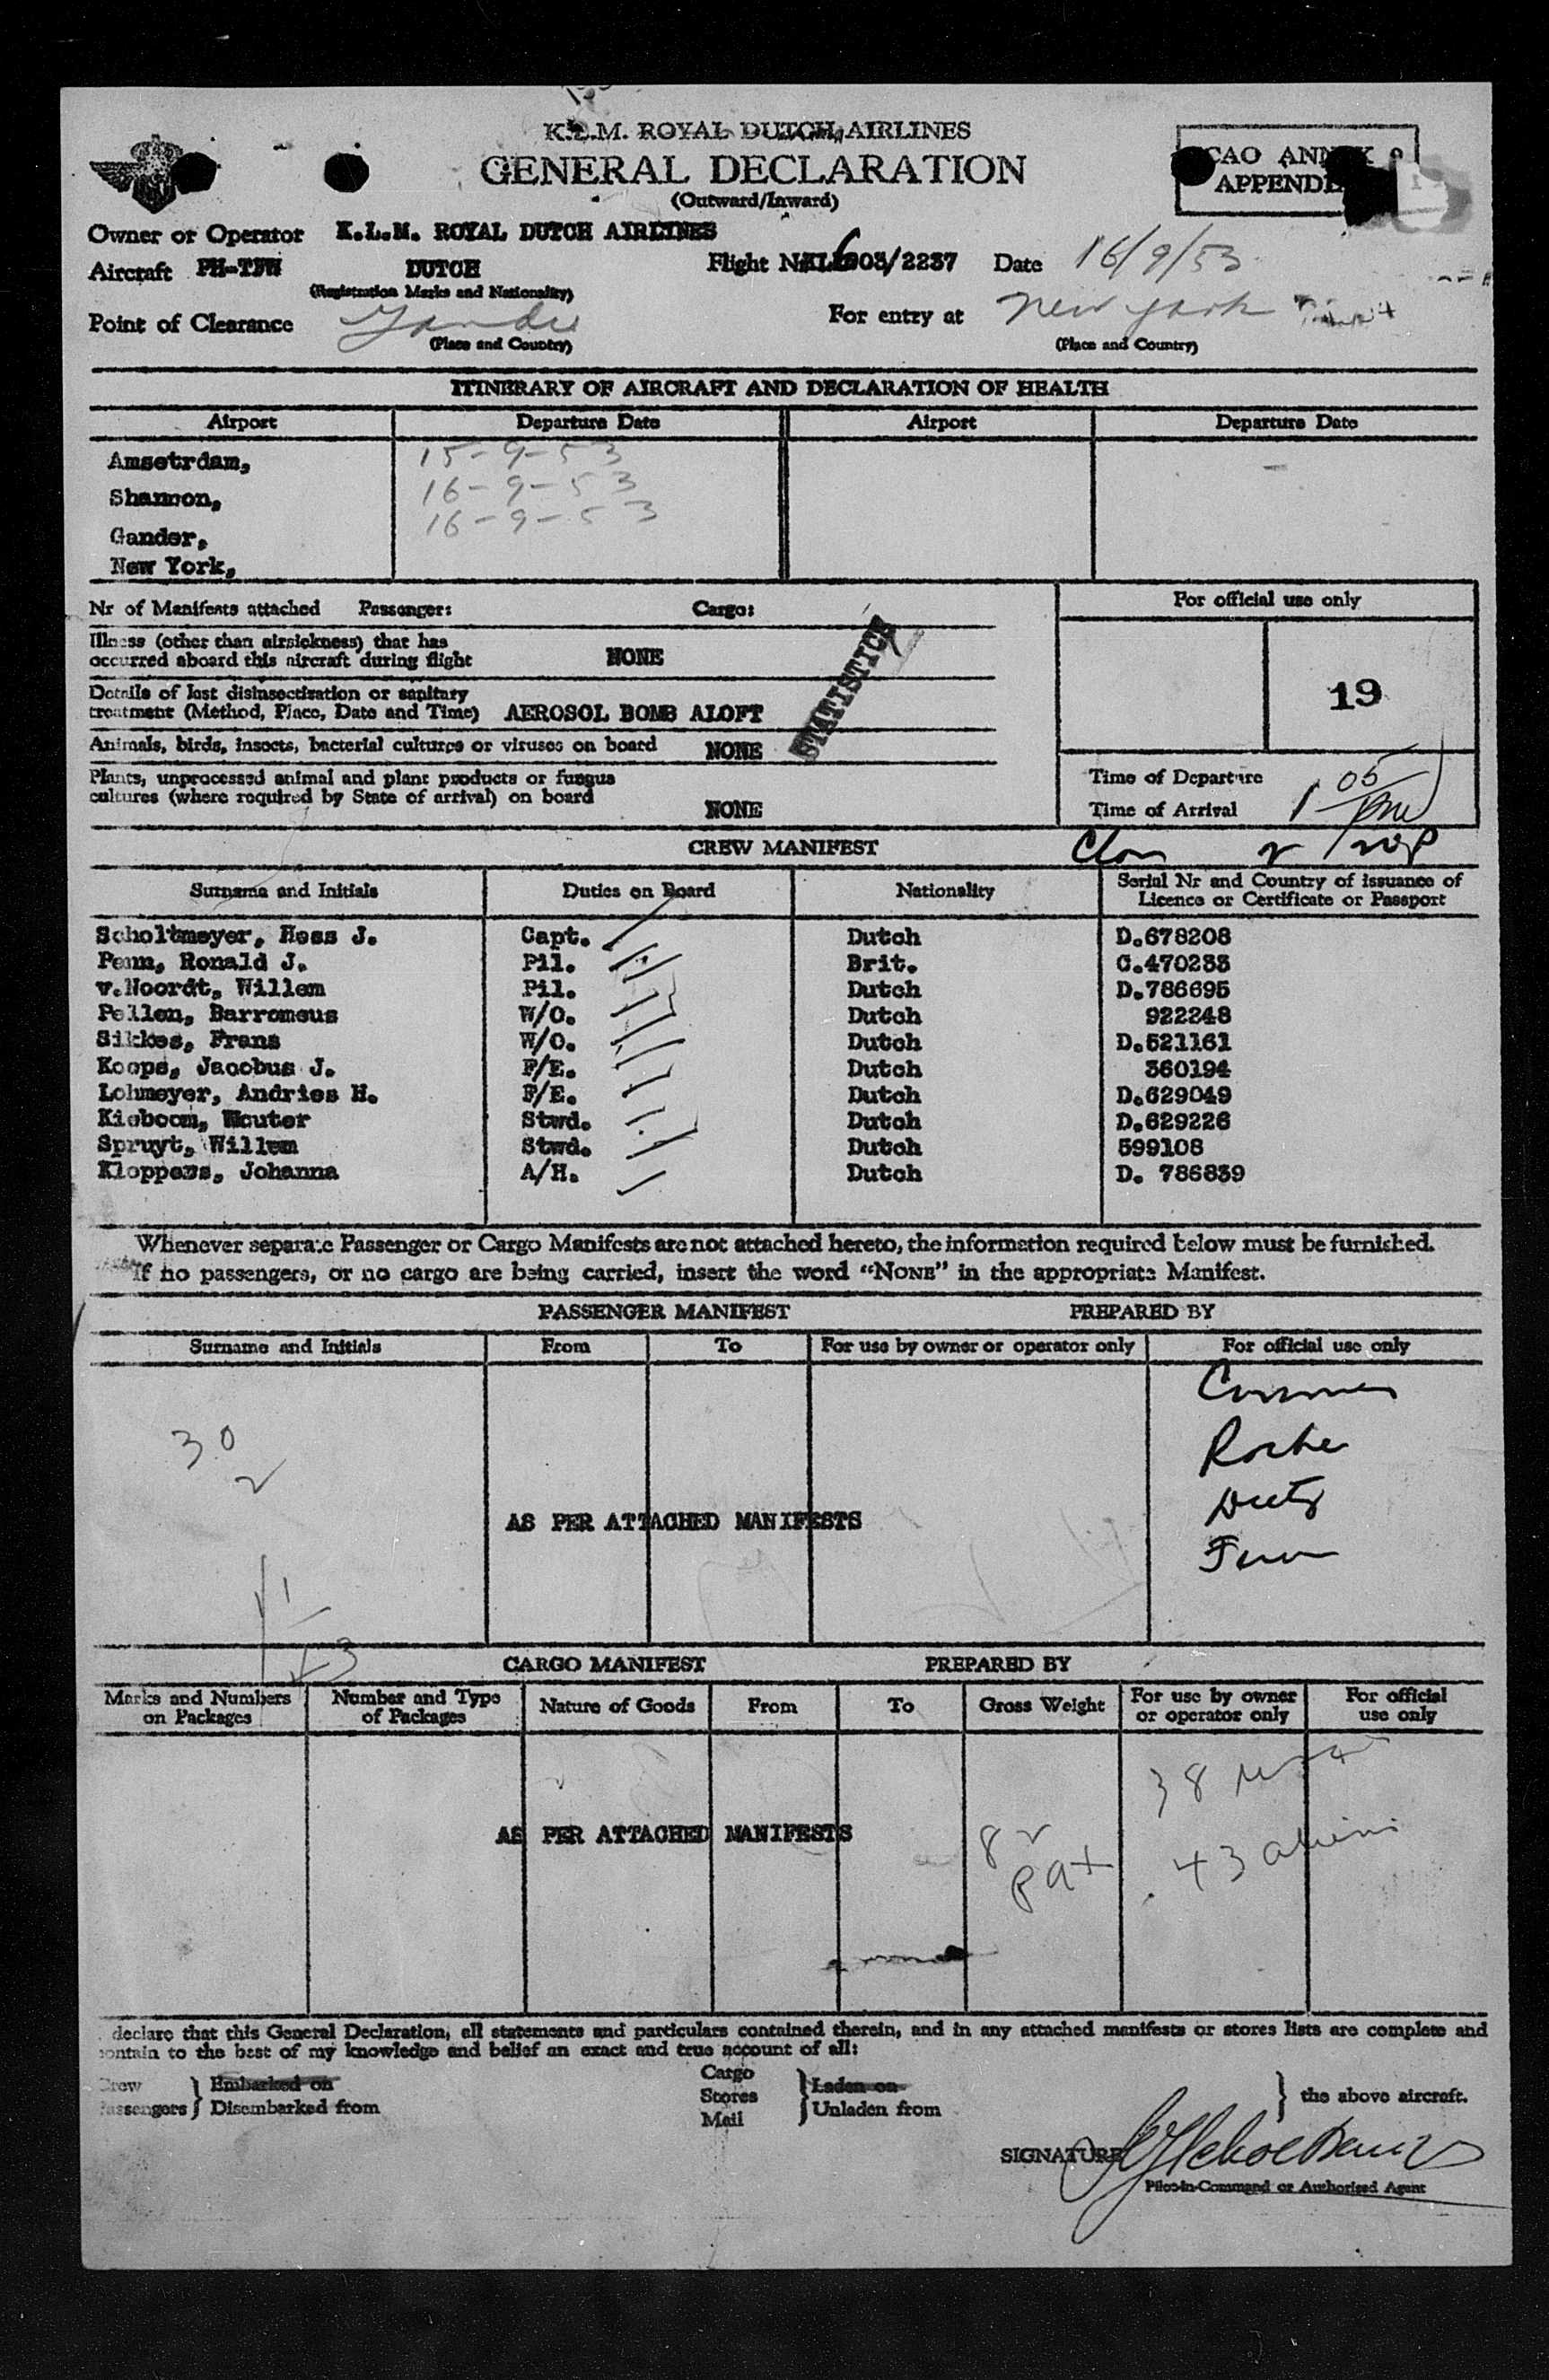 K.L.M. ROYAL DUTCH AIRLINES
GENERAL DECLARATION
(Outward/Inward)
Owner or Operator K.L.M. ROYAL DUTCH AIRLINES
Aircraft DUTCH Flight 603/2237 Date 16/9/53
(Registration Marks and Nationality)
Point of Clearance Gander For entry at New York
(Place and Country) (Place and Country)
ITINERARY OF AIRCRAFT AND DECLARATION OF HEALTH
Airport Departure Date Airport Departure Date
Amsetrdam, 15-9-53
Shannon, 16-9-53
Gander, 16-9-53
New York,
Nr of Manifests attached Passenger: Cargo: For official use only
Illness (other than airsickness) that has
occurred aboard this aircraft during flight NONE
STATISTICS
Details of last disinsectization or sanitary
treatment (Method, Place, Date and Time) AEROSOL BOMB ALOFT
19
Animals, birds, insects, bacterial cultures or viruses on board NONE
Plants, unprocessed animal and plant products or fungus
cultures (where required by State of arrival) on board NONE
Time of Departure
Time of Arrival 1 05 PM
CREW MANIFEST
Surname and Initials Duties on Board Nationality Serial Nr and Country of issuance of
Licence or Certificate or Passport
Scholtmeyer, Hess J. Capt. Dutch D.678208
Penn, Ronald J. Pil. Brit. C.470233
v.Noordt, Willem Pil. Dutch D.786695
Pellen, Barromeus W/O. Dutch 922248
Sikkes, Frans W/O. Dutch D.521161
Koops, Jacobus J. F/E. Dutch 360194
Lohmeyer, Andries H. F/E. Dutch D.629049
Kieboom, Wouter Stwd. Dutch D.629226
Spruyt, Willem Stwd. Dutch 599108
Kloppers, Johanna A/H. Dutch D. 786839
Whenever separate Passenger or Cargo Manifests are not attached hereto, the information required below must be furnished.
If no passengers, or no cargo are being carried, insert the word "NONE" in the appropriate Manifest.
PASSENGER MANIFEST PREPARED BY
Surname and Initials From To For use by owner or operator only For official use only
30
2
Roche
AS PER ATTACHED MANIFESTS
CARGO MANIFEST PREPARED BY
Marks and Numbers
on Packages
Number and Type
of Packages
Nature of Goods From To Gross Weight
For use by owner
or operator only
For official
use only
38
AS PER ATTACHED MANIFESTS
82
pax
43 aliens
declare that this General Declaration, all statements and particulars contained therein, and in any attached manifests or stores lists are complete and
contain to the best of my knowledge and belief an exact and true account of all:
Crew
Passengers
Embarked on
Disembarked from
Cargo
Stores
Mail
Laden on
Unladen from
the above aircraft.
SIGNATURE
Pilot-in-Command or Authorised Agent